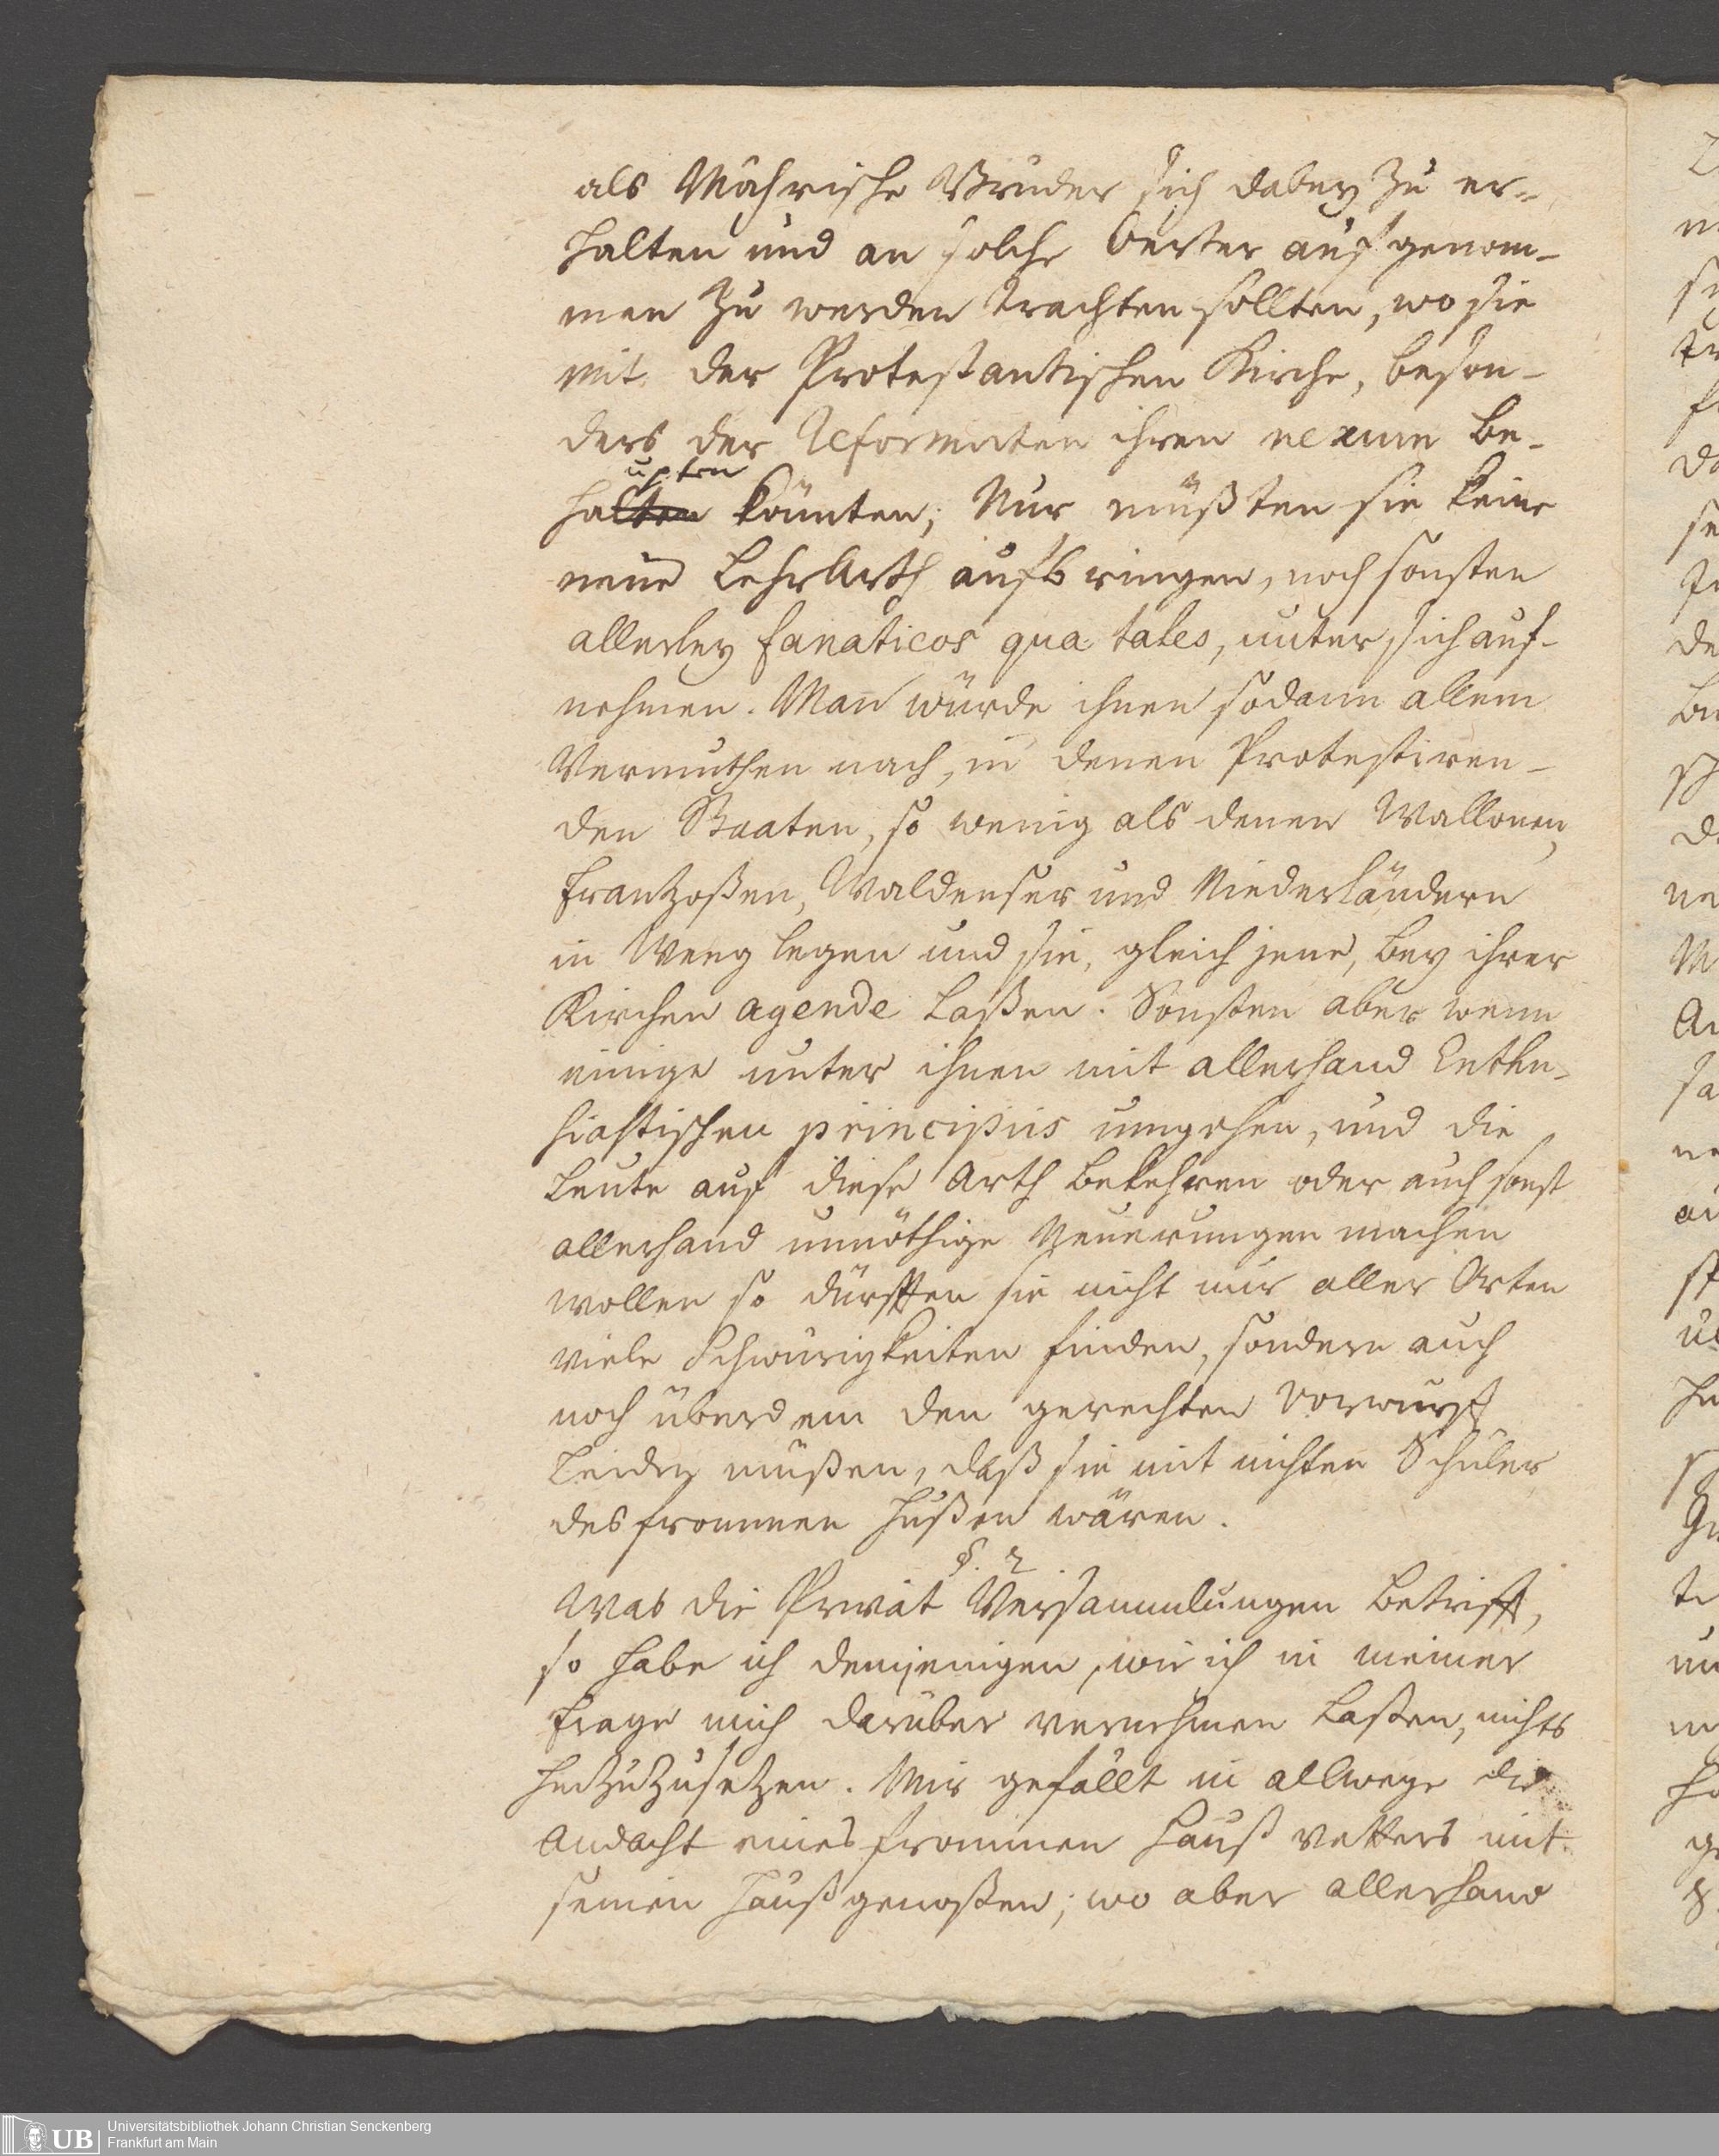 als Mährische Brüder sich dabey zu er-
halten und an solche Oerter aufgenom-
men zu werden trachten sollten, wo sie
mit der Protestantischen Kirche, beson-
ders der Reformirten ihren nexum be-
upten
halten könnten; Nur müßten sie keine
neue LehrArth aufbringen, noch sonsten
allerley fanaticos qua tales, unter sich auf-
nehmen. Man würde ihnen sodann allem
Vermuthen nach, in denen Protestiren-
den Staaten, so wenig als denen Wallonen,
Frantzoßen, Waldenser und Niederländern
in Weeg legen und sie, gleich jene, bey ihrer
Kirchen agende laßen. Sonsten aber wenn
einige unter ihnen mit allerhand Enthu-
siastischen principiis umgehen, und die
Leute auf diese Arth bekehren oder auch sonst
allerhand unnöthige Neuerungen machen
wollen so dürfften sie nicht nur aller Orten
viele Schwürigkeiten finden, sondern auch
noch überdem den gerechten Vorwurff
leiden müßen, daß sie mit nichten Schüler
des frommen Hußen wären.
§. 2
Was die Privat Versammlungen betrifft,
so habe ich demjenigen, wie ich in meiner
Frage mich darüber vernehmen laßen, nichts
hinzuzusetzen. Mir gefällt in allwege die
Andacht eines frommen Hauß vatters mit
seinen Haußgenoßen; wo aber allerhand
Universitätsbibliothek Johann Christian Senckenberg
UB
Frankfurt am Main